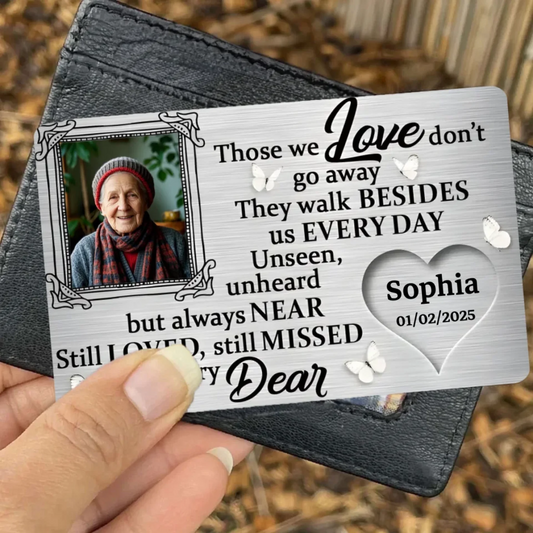 Those we Love don't
go away
They walk BESIDES
us EVERY DAY
Unseen,
unheard
but always NEAR
Still LOVED, still MISSED
Dear
Sophia
01/02/2025